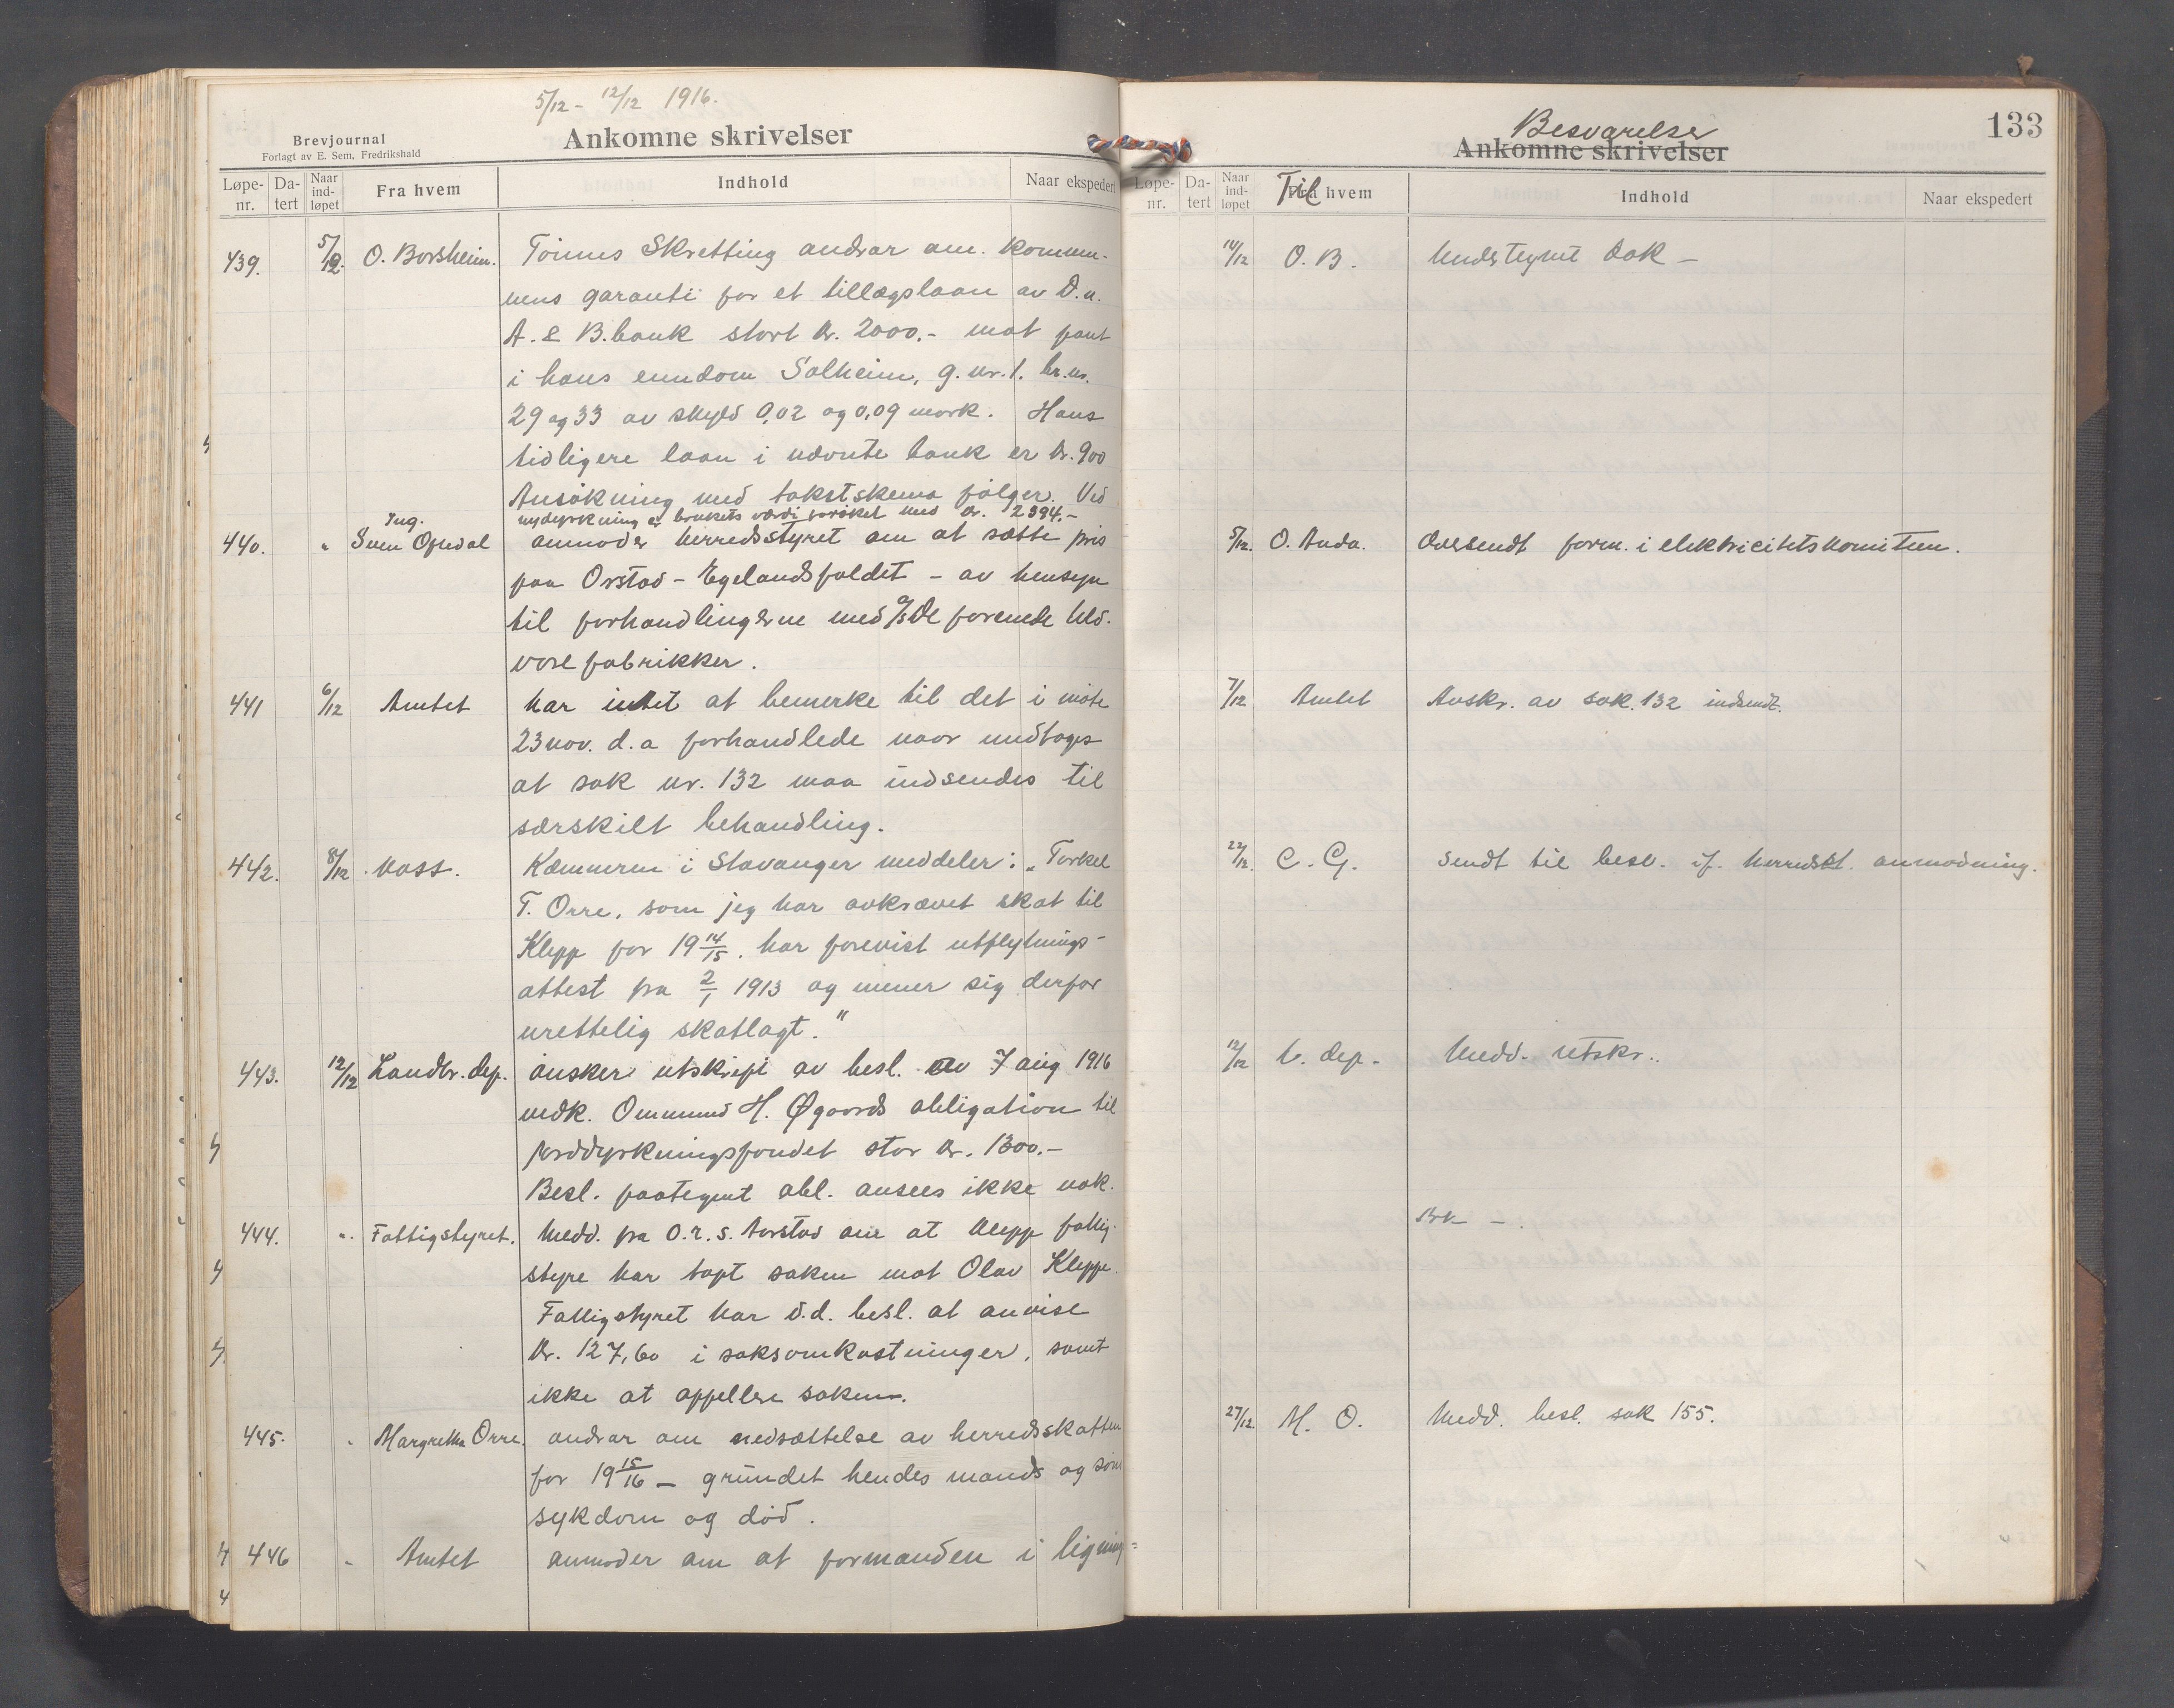 5/12 - 12/12 1916.
Brevjournal
Forlagt av E. Sem, Fredrikshald
Ankomne skrivelser
Løpe-nr. Da-tert Naar ind-løpet Fra hvem Indhold Naar ekspedert
439. 5/12. O. Borsheim. Tönnes Skretting andrar om. kommu-
nens garanti for et tillægslaan av D.n.
A. & B.bank stort kr. 2000.- mot pant
i hans eiendom Solheim, g.nr.1. br.nr.
29 og 33 av skyld 0,02 og 0,09 mark. Hans
tidligere laan i nævnte bank er kr. 900
Ansökning med takstskema fölger. Ved
nydyrkning er brukets værdi foröket med kr. 2394.-
440. " Ing. Sven Opedal anmoder herredsstyret om at sætte pris
paa Orstad - Egelandsfaldet - av hensyn
til forhandlingerne med A/S De forenede Uld-
varefabrikker.
441 6/12 Amtet har intet at bemerke til det i möte
23 nov. d.a forhandlede naar undtages
at sak nr. 132 maa indsendes til
særskilt behandling.
442. 8/12 Kass. Kæmneren i Stavanger meddeler: „Torkel
T. Orre, som jeg har avkrævet skat til
Klepp for 19 14/15. har forevist utflytnings-
attest fra 2/1 1913 og mener sig derfor
urettelig skatlagt."
443. 12/12 Landbr. dep. önsker utskrift av besl. av 7 aug 1916
vedk. Ommund H. Øgaards obligation til
jorddyrkningsfondet stor kr. 1300.-
Besl. paategnet obl. ansees ikke nok.
444. ". Fattigstyret. Medd. fra O.r.s. Aarstad om at Klepp fattig-
styre har tapt saken mot Olav Kleppe.
Fattigstyret har d.d. besl. at anvise
kr. 127,60 i saksomkostninger, samt
ikke at appellere saken.
445. " Margretha Orre. andrar om nedsættelse av herredsskatten
for 19 15/16 - grundet hendes mands og sön
sykdom og död.
446 " Amtet anmoder om at formanden i ligning-
133
Besvarelser
Ankomne skrivelser
Løpe-nr. Da-tert Naar ind-løpet Til Fra hvem Indhold Naar ekspedert
14/12 O. B. Understegnet dok -
5/12. O. Anda. Oversendt form. i elektricitetskomiteen.
7/12 Amtet Avskr. av sak. 132 indsendt.
22/12. C. G. Sendt til besv. if. herredsst. anmodning.
12/12 L. dep. Medd. utskr..
27/12 M. O. Medd. besl. sak 155.